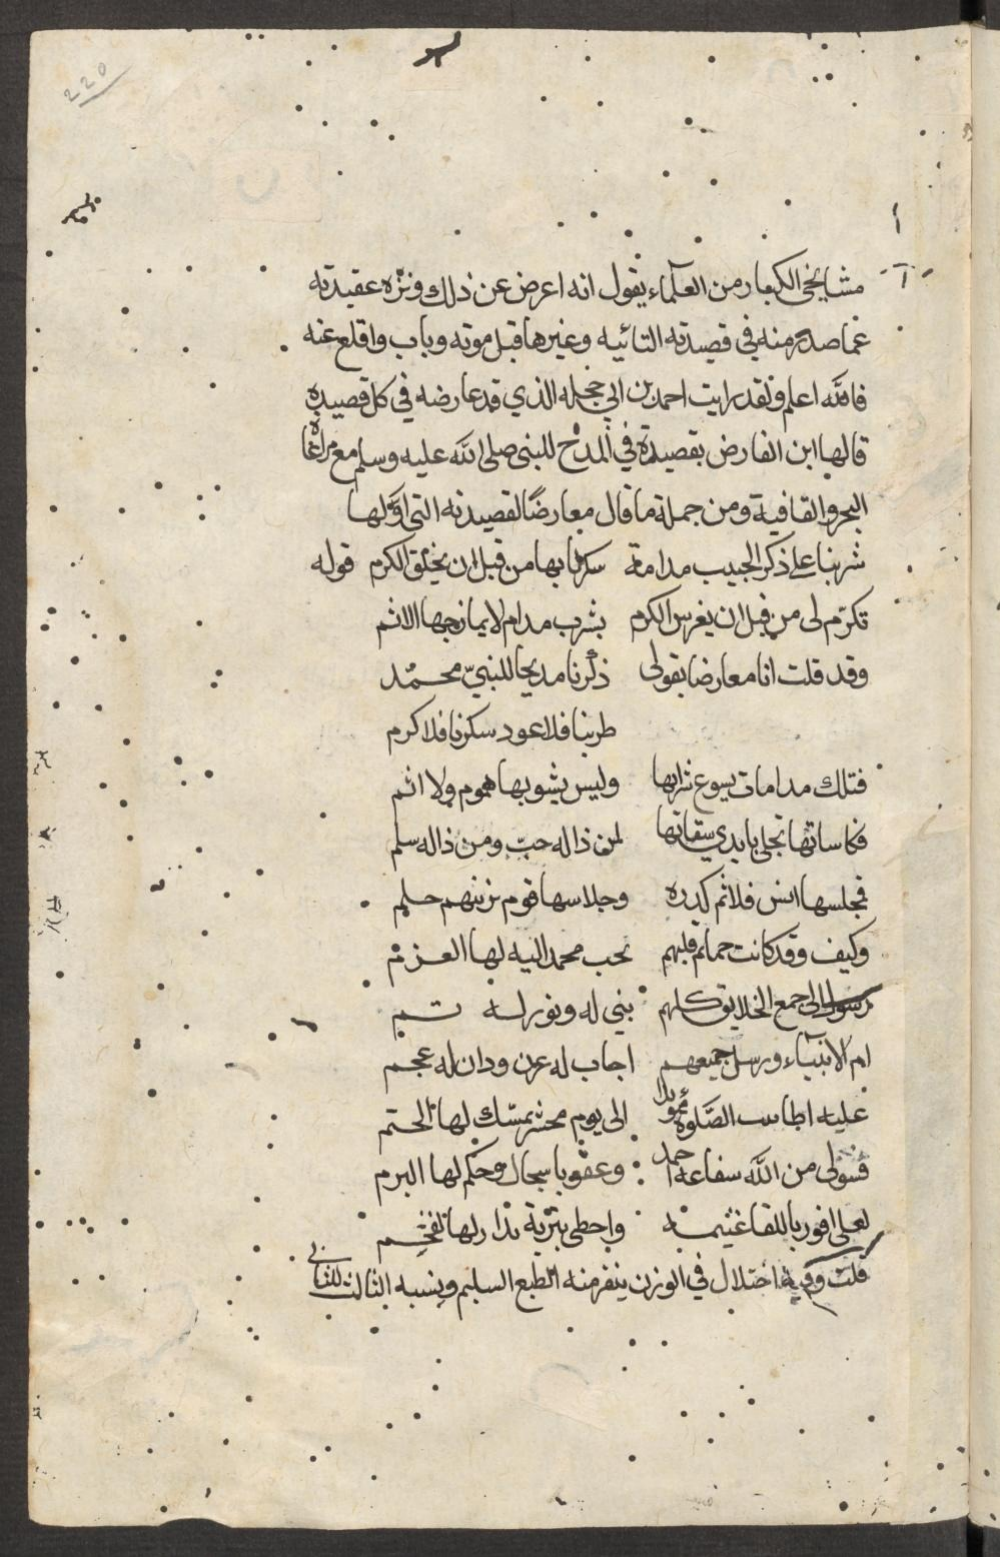 220
مشايخي الكبار من العلماء يقول انه اعرض عن ذلك ونزه عقيدته
عما صدر منه في قصيدته التائيه وغيرها قبل موته وتاب واقلع عنه
فالله اعلم ولقد رايت احمد بن ابي حجله الذي قد عارضه في كل قصيده
قالها ابن الفارض بقصيدة في المدح للنبي صلى الله عليه وسلم مع مراعاة
البحر والقافية ومن جملة ما قال معارضًا لقصيدته التي اوّلها
شربنا على ذكر الحبيب مدامة سكرنا بها من قبل ان يخلق الكرم قوله
تكرّم لي من قبل ان يغرس الكرم بشرب مدام لا يمازجها الاثم
وقد قلت انا معارضا بقولي ذكرنا مديحا للنبيّ محمّد
طربنا فلا عود سكرنا فلا كرم
فتلك مدامات يسوغ شرابها وليس يشوبها هموم ولا اثم
فكاساتها تجلى بايدي سقاتها لمن ذاله حبّ ومن ذاله سلم
فمجلسها انس فلا ثم كدره وجلاسها قوم يزينهم حلم
وكيف وقد كانت حماتم قلبهم بحب محمد اليه لها العزم
رسول الى جمع الخلايق كلهم نبي له ونور له
ام الانبياء ورسل جميعهم اجاب له عرب ودان له عجم
عليه الصّلوة الى يوم محشر بمسك لها الختم
من الله احمد وحكم لها البرم
لعلي افوز باللقا غنيمه واحظى بتربة
قلت وفيه اختلال في الوزن ينفر منه الطبع السليم ونسبه الثالث للثاني